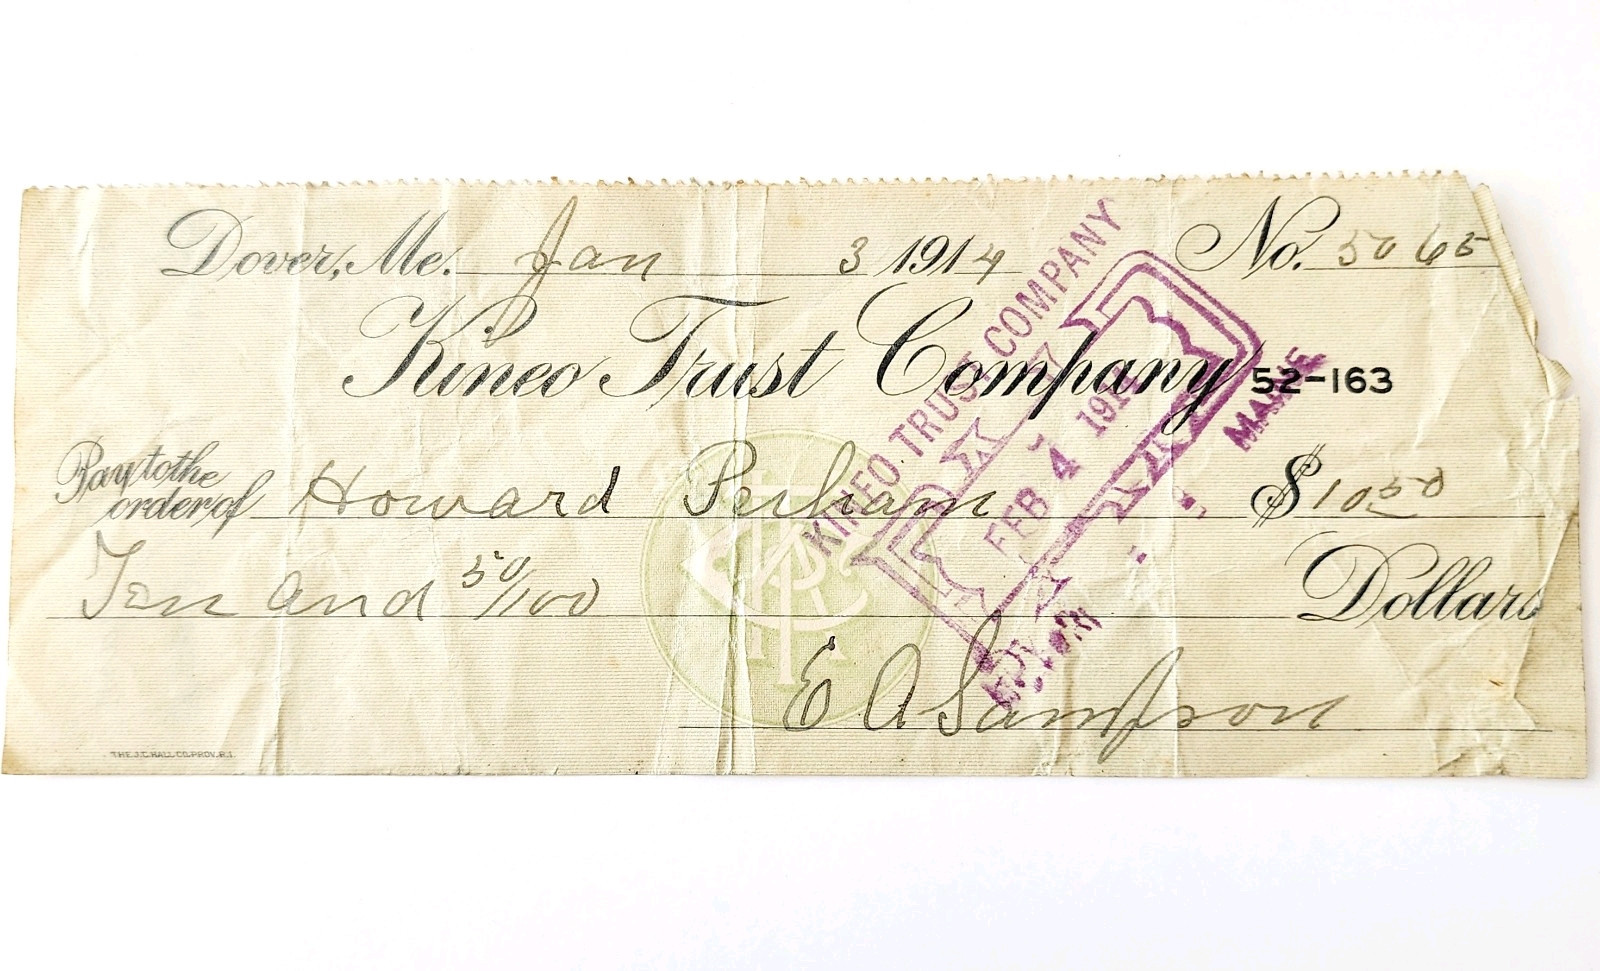 Dover, Me. Jan 3 1914 No. 5065
Kineo Trust Company 52-163
Pay to the order of Howard Perham $10 50
Ten and 50/100 Dollars
E A Sampson
KINEO TRUST COMPANY
FEB 4 191
MAINE
THE J.C. HALL CO. PROV. R.I.